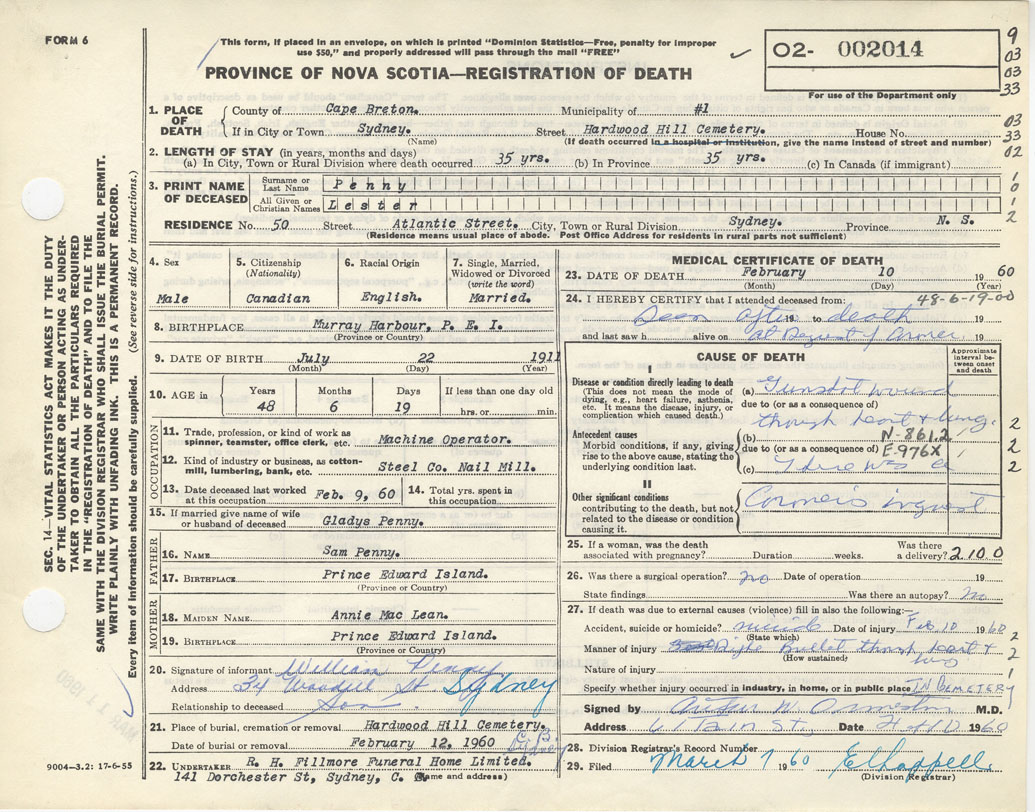 FORM 6
This form, if placed in an envelope, on which is printed "Dominion Statistics—Free, penalty for improper
use $50," and properly addressed will pass through the mail "FREE"
PROVINCE OF NOVA SCOTIA—REGISTRATION OF DEATH
02- 002014
For use of the Department only
9
03
03
33
1. PLACE OF DEATH
County of Cape Breton. Municipality of #1
03
If in City or Town Sydney. Street Hardwood Hill Cemetery. House No.
33
(Name) (If death occurred in a hospital or institution, give the name instead of street and number)
02
2. LENGTH OF STAY (in years, months and days)
(a) In City, Town or Rural Division where death occurred 35 yrs. (b) In Province 35 yrs. (c) In Canada (if immigrant)
3. PRINT NAME OF DECEASED
Surname or Last Name Penny
All Given or Christian Names Lester
1
0
1
2
RESIDENCE No. 50 Street Atlantic Street. City, Town or Rural Division Sydney. Province N. S.
(Residence means usual place of abode. Post Office Address for residents in rural parts not sufficient)
4. Sex
Male
5. Citizenship (Nationality)
Canadian
6. Racial Origin
English.
7. Single, Married, Widowed or Divorced (write the word)
Married.
8. BIRTHPLACE Murray Harbour, P. E. I.
(Province or Country)
9. DATE OF BIRTH July 22 1911
(Month) (Day) (Year)
10. AGE in
Years Months Days If less than one day old
48 6 19 hrs. or min.
OCCUPATION
11. Trade, profession, or kind of work as spinner, teamster, office clerk, etc. Machine Operator.
12. Kind of industry or business, as cotton-mill, lumbering, bank, etc. Steel Co. Nail Mill.
13. Date deceased last worked at this occupation Feb. 9, 60
14. Total yrs. spent in this occupation
15. If married give name of wife or husband of deceased Gladys Penny.
FATHER
16. NAME Sam Penny.
17. BIRTHPLACE Prince Edward Island.
(Province or Country)
MOTHER
18. MAIDEN NAME Annie Mac Lean.
19. BIRTHPLACE Prince Edward Island.
(Province or Country)
20. Signature of informant William Penny
Address 34 St Sydney
Relationship to deceased Son.
21. Place of burial, cremation or removal Hardwood Hill Cemetery.
Date of burial or removal February 12, 1960
22. UNDERTAKER R. H. Fillmore Funeral Home Limited.
141 Dorchester St, Sydney, C. (Name and address)
MEDICAL CERTIFICATE OF DEATH
23. DATE OF DEATH February 10 1960
(Month) (Day) (Year)
48-6-19-00
24. I HEREBY CERTIFY that I attended deceased from:
Seen after 19 to death 19
and last saw h alive on at Request of Coroner 19
CAUSE OF DEATH
Approximate interval between onset and death
I
Disease or condition directly leading to death
(This does not mean the mode of dying, e.g., heart failure, asthenia, etc. It means the disease, injury, or complication which caused death.)
(a) Gunshot wound
due to (or as a consequence of)
through heart & lung.
2
Antecedent causes
Morbid conditions, if any, giving rise to the above cause, stating the underlying condition last.
(b) N-861.2
due to (or as a consequence of) E-976X
2
(c) There was a
2
II
Other significant conditions contributing to the death, but not related to the disease or condition causing it.
Coroner's inquest
25. If a woman, was the death associated with pregnancy? Duration weeks. Was there a delivery? 2100
26. Was there a surgical operation? no Date of operation 19
State findings Was there an autopsy? no
27. If death was due to external causes (violence) fill in also the following:—
Accident, suicide or homicide? suicide Date of injury Feb 10 1960
(State which)
2
Manner of injury Rifle Bullet through heart &
(How sustained)
2
Nature of injury
1
Specify whether injury occurred in industry, in home, or in public place IN CEMETERY
Signed by M.D.
Address Date 1960
28. Division Registrar's Record Number
29. Filed March 7 1960 Chappell
(Division Registrar)
SEC. 14—VITAL STATISTICS ACT MAKES IT THE DUTY
OF THE UNDERTAKER OR PERSON ACTING AS UNDER-
TAKER TO OBTAIN ALL THE PARTICULARS REQUIRED
IN THE "REGISTRATION OF DEATH" AND TO FILE THE
SAME WITH THE DIVISION REGISTRAR WHO SHALL ISSUE THE BURIAL PERMIT.
WRITE PLAINLY WITH UNFADING INK. THIS IS A PERMANENT RECORD.
Every item of information should be carefully supplied. (See reverse side for instructions.)
MAR 11 1960
9004-3.2: 17-6-55